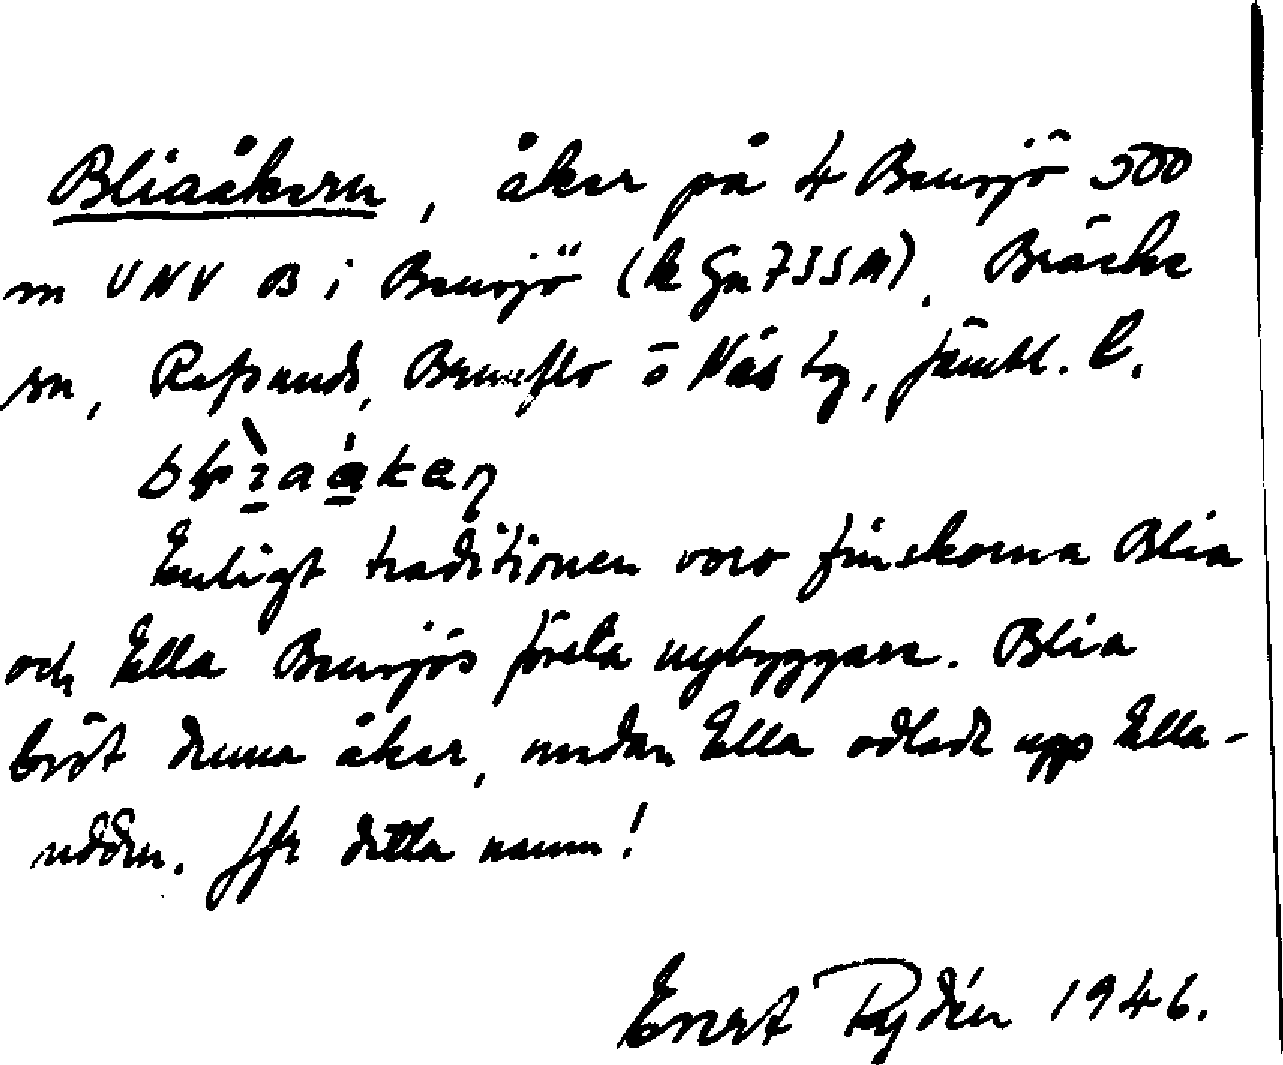 Bliaåkern, åker på 4 Bensjö 500
m VNV B i Bensjö (k Gn 7355M). Bräcke
sn, Refsunds, Brunflo o Näs tg, Jämtl. l.
Enligt traditionen voro finskorna Blia
och Ella Bensjös första nybyggare. Blia
bröt denna åker, medan Ella odlade upp Ella-
udden. Jfr detta namn!
Evert Rydén 1946.